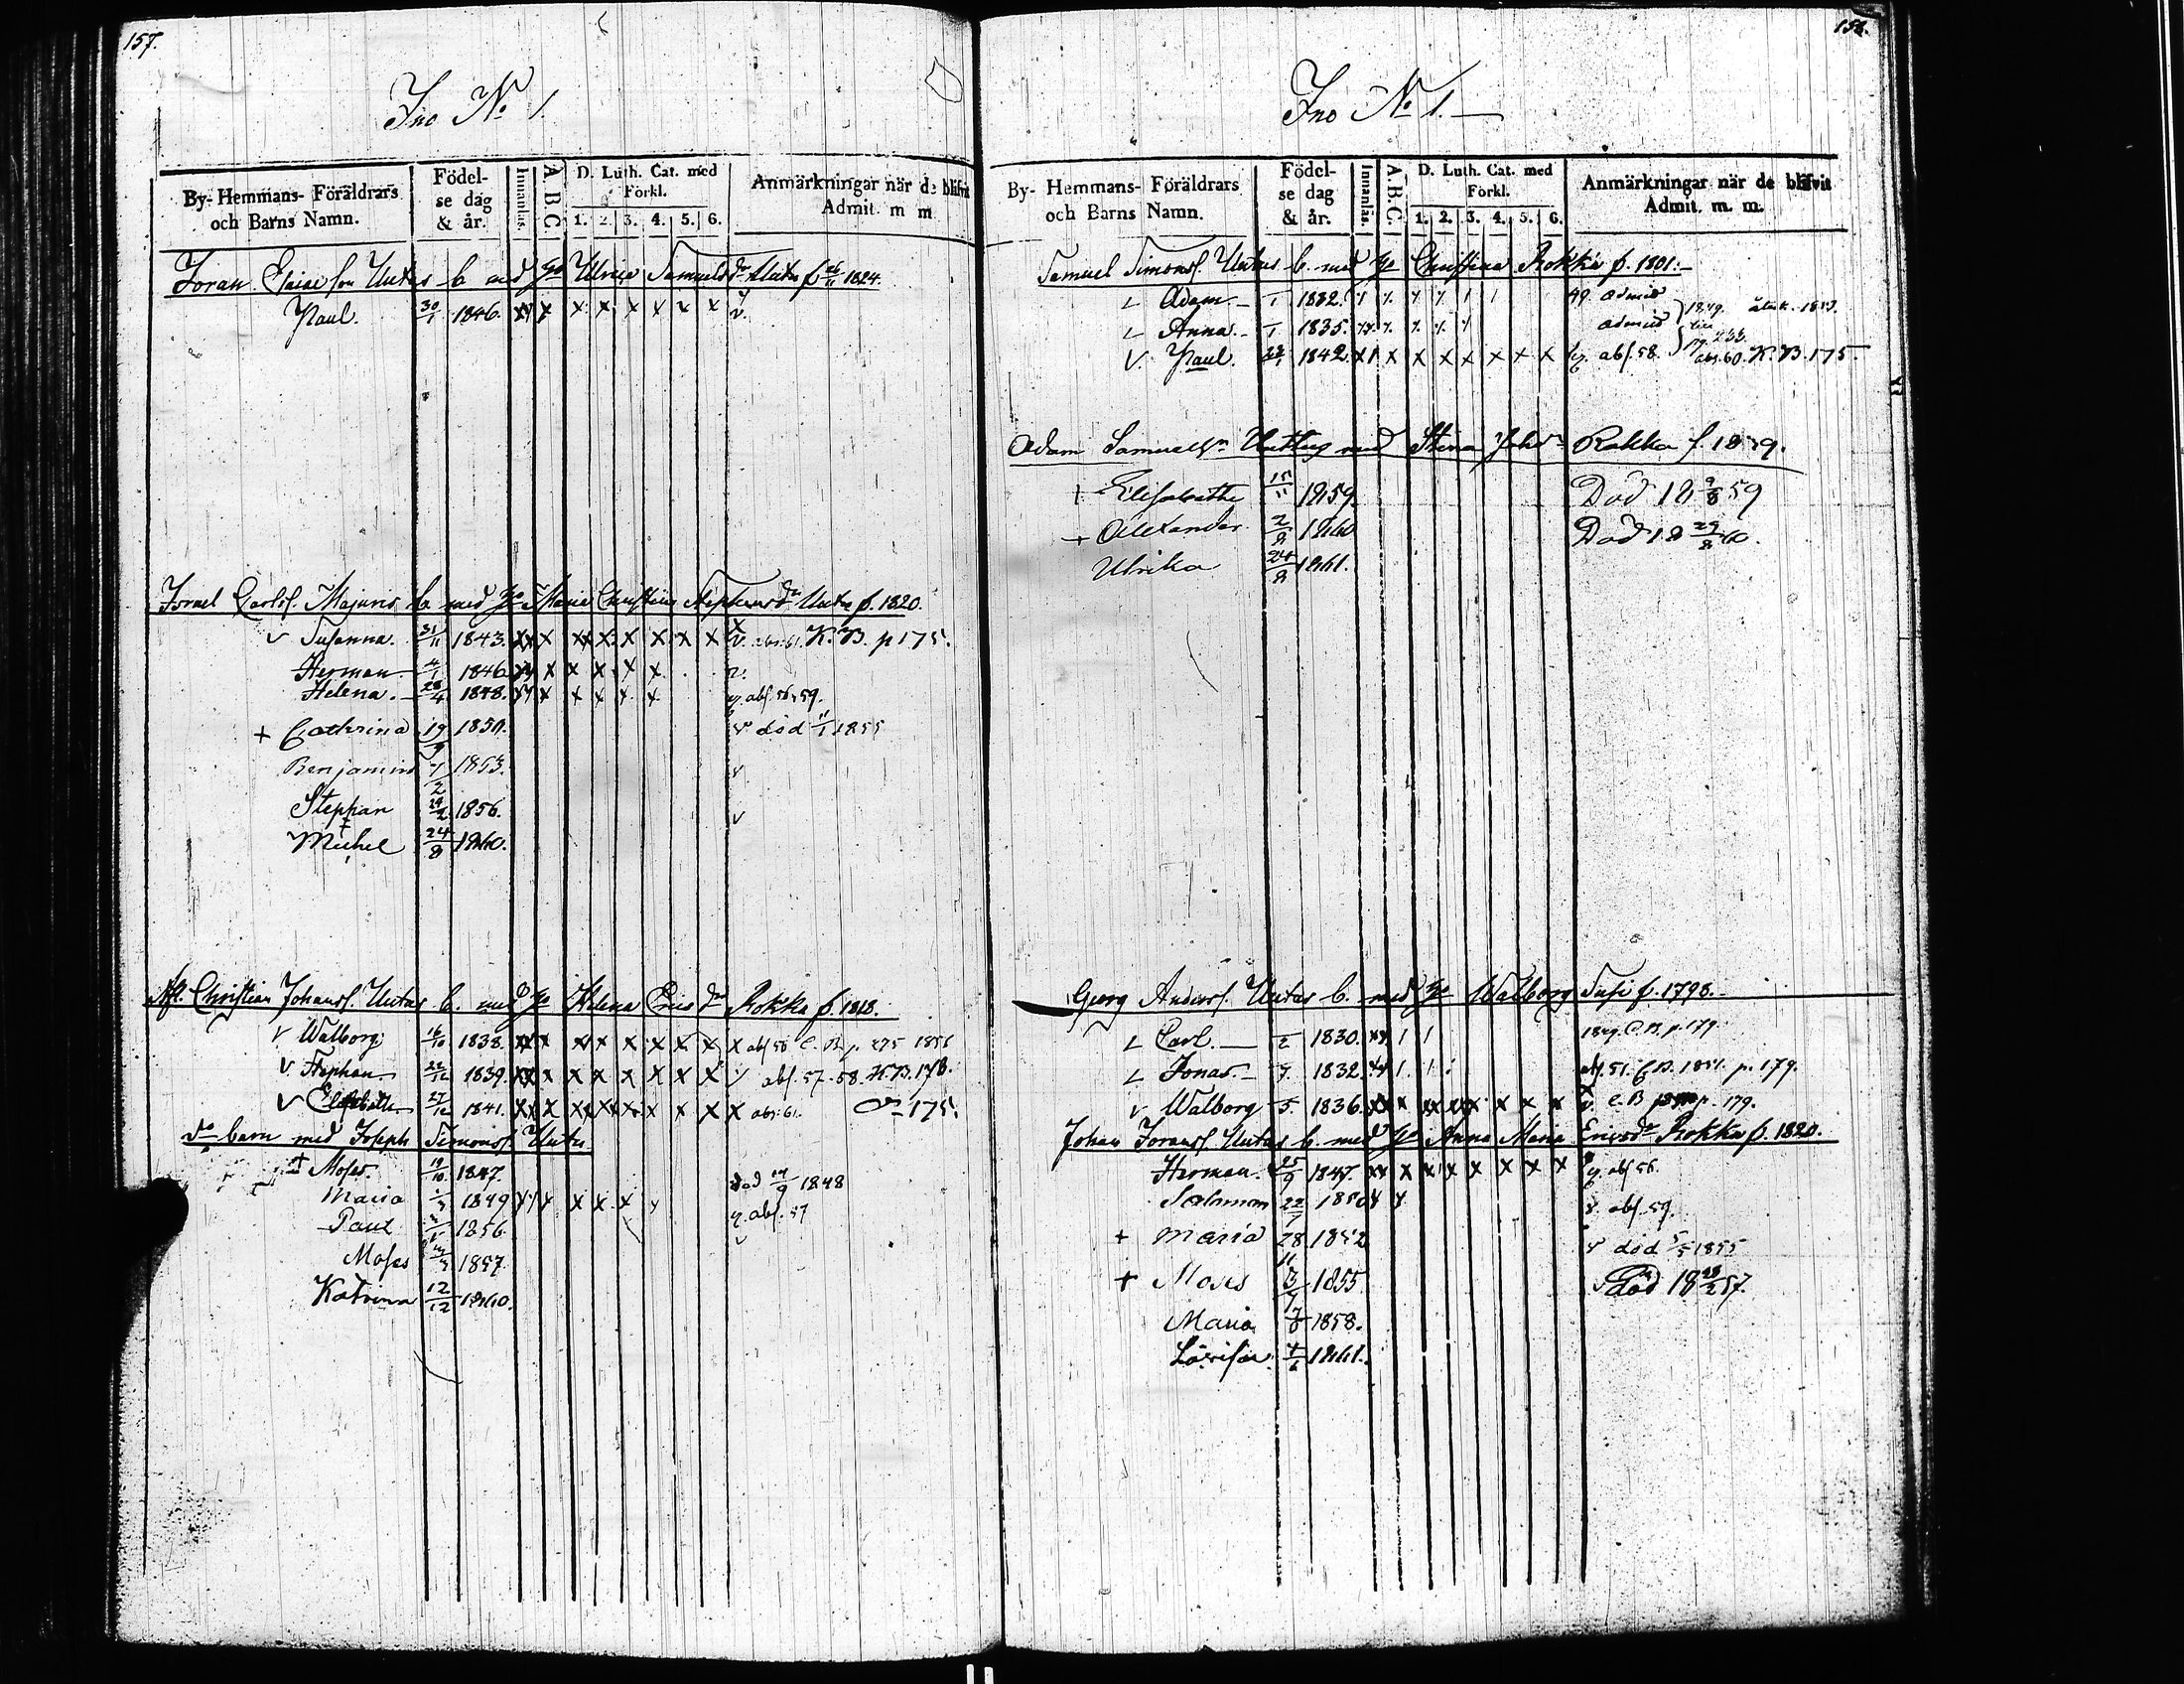 157.
Ino No 1.
By- Hemmans- Föräldrars och Barns Namn.
Födelse dag & år.
Innanläs.
A B C
D. Luth. Cat. med Förkl.
1. 2. 3. 4. 5. 6.
Anmärkningar när de blifvit Admit. m m.
Joran son Untus b med Ulrica Samuelsdr Untus f 26/11 1824.
Paul. 30/1 1846. x x x x x x x v.
Israel Carlss. Majuris b. med Maria Christina Stephansdr Untus f. 1820.
v Susanna. 31/11 1843. x x x x x x x x v. abs. 61. K.B. p 175.
Herman 4/1 1846 x x x x x v.
Helena. 28/4 1848. x x x x x abs. 56, 59.
+ Cathrina 19/9 1850. v död 11/1 1855
Benjamin 7/2 1853. v
Stephan 29/2 1856. v
Michel 24/8 1860.
Afl. Christian Johanss. Untus b. med Helena Ericsdr Rokka f. 1818.
v Walborg 16/10 1838. x x x x x x x x abs 56 C. B. p. 275 1856
v. Stephan 22/12 1839. x x x x x x x abs. 57-58. K.B. 178.
v Elisabeth 27/12 1841. x x x x x x x x abs. 61. 175.
do barn med Joseph Simonss. Untus
+ Moses. 19/10 1847. död 14/9 1848
Maria 1849 x x x x abs. 57
Paul 1856. v
Moses 1857
Katrina 12/12 1860.
158.
Ino No 1.
By- Hemmans- Föräldrars och Barns Namn.
Födelse dag & år.
Innanläs.
A.B.C.
D. Luth. Cat. med Förkl.
1. 2. 3. 4. 5. 6.
Anmärkningar när de blifvit Admit. m. m.
Samuel Simonss. Untus b. med Christina Rokka f. 1801.
Adam 1832. 49. admit
Anna. 1835. admit 1849.
v. Paul. 1842. x x x x x x x x abs. 58. abs. 60. K.B. 175.
Adam Samuelsn Unttus med Stina Rokka f. 1839.
Elisabeth 15/11 1859. Död 18 9/8 59
+ Alexander 2/8 1860 Död 18 29/8 60.
Ulrika 24/8 1861.
Georg Anderss. Untus b. med Walborg Susi f. 1798.
Carl. 1830. 1849. C.B. p. 179
Jonas. 1832. abs. 51. C.B. 1851. p. 179.
v Walborg 1836. x x x x x x C. B p. 179.
Johan Joranss. Untus b. med Anna Maria Ericsdr Rokka f. 1820.
Herman 25/9 1847. x x x x x x x abs 56.
Salomon 22/7 1850 abs. 59.
+ Maria 28/11 1852 v död 5/5 1855
+ Moses 3/7 1855. död 18 28/2 57.
Maria 1858.
Lovisa 1861.